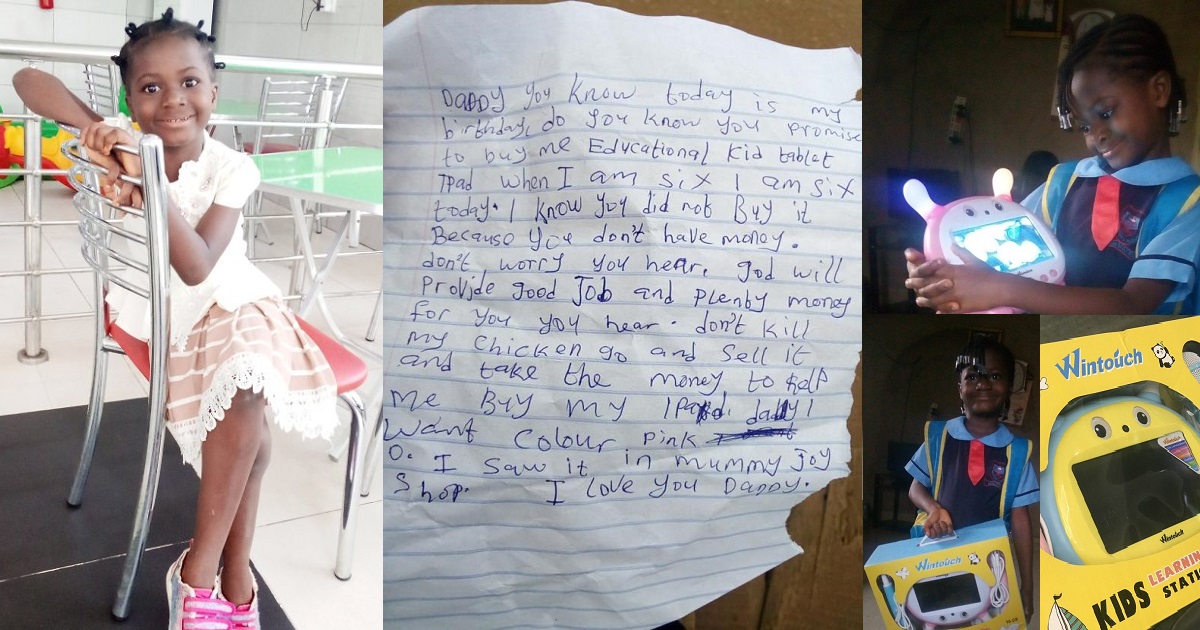 Daddy you know today is my
birthday, do you know you promise
to buy me Educational kid tablet
Ipad when I am six I am six
today. I know you did not Buy it
Because you don't have money.
don't worry you hear. god will
Provide good Job and plenty money
for you you hear. don't kill
my chicken go and sell it
and take the money to help
me Buy my Ipad. daddy I
want colour pink
o. I saw it in mummy Joy
Shop. I love you Daddy.
Wintouch
Wintouch
Wintouch
KIDS LEARNING
STATI